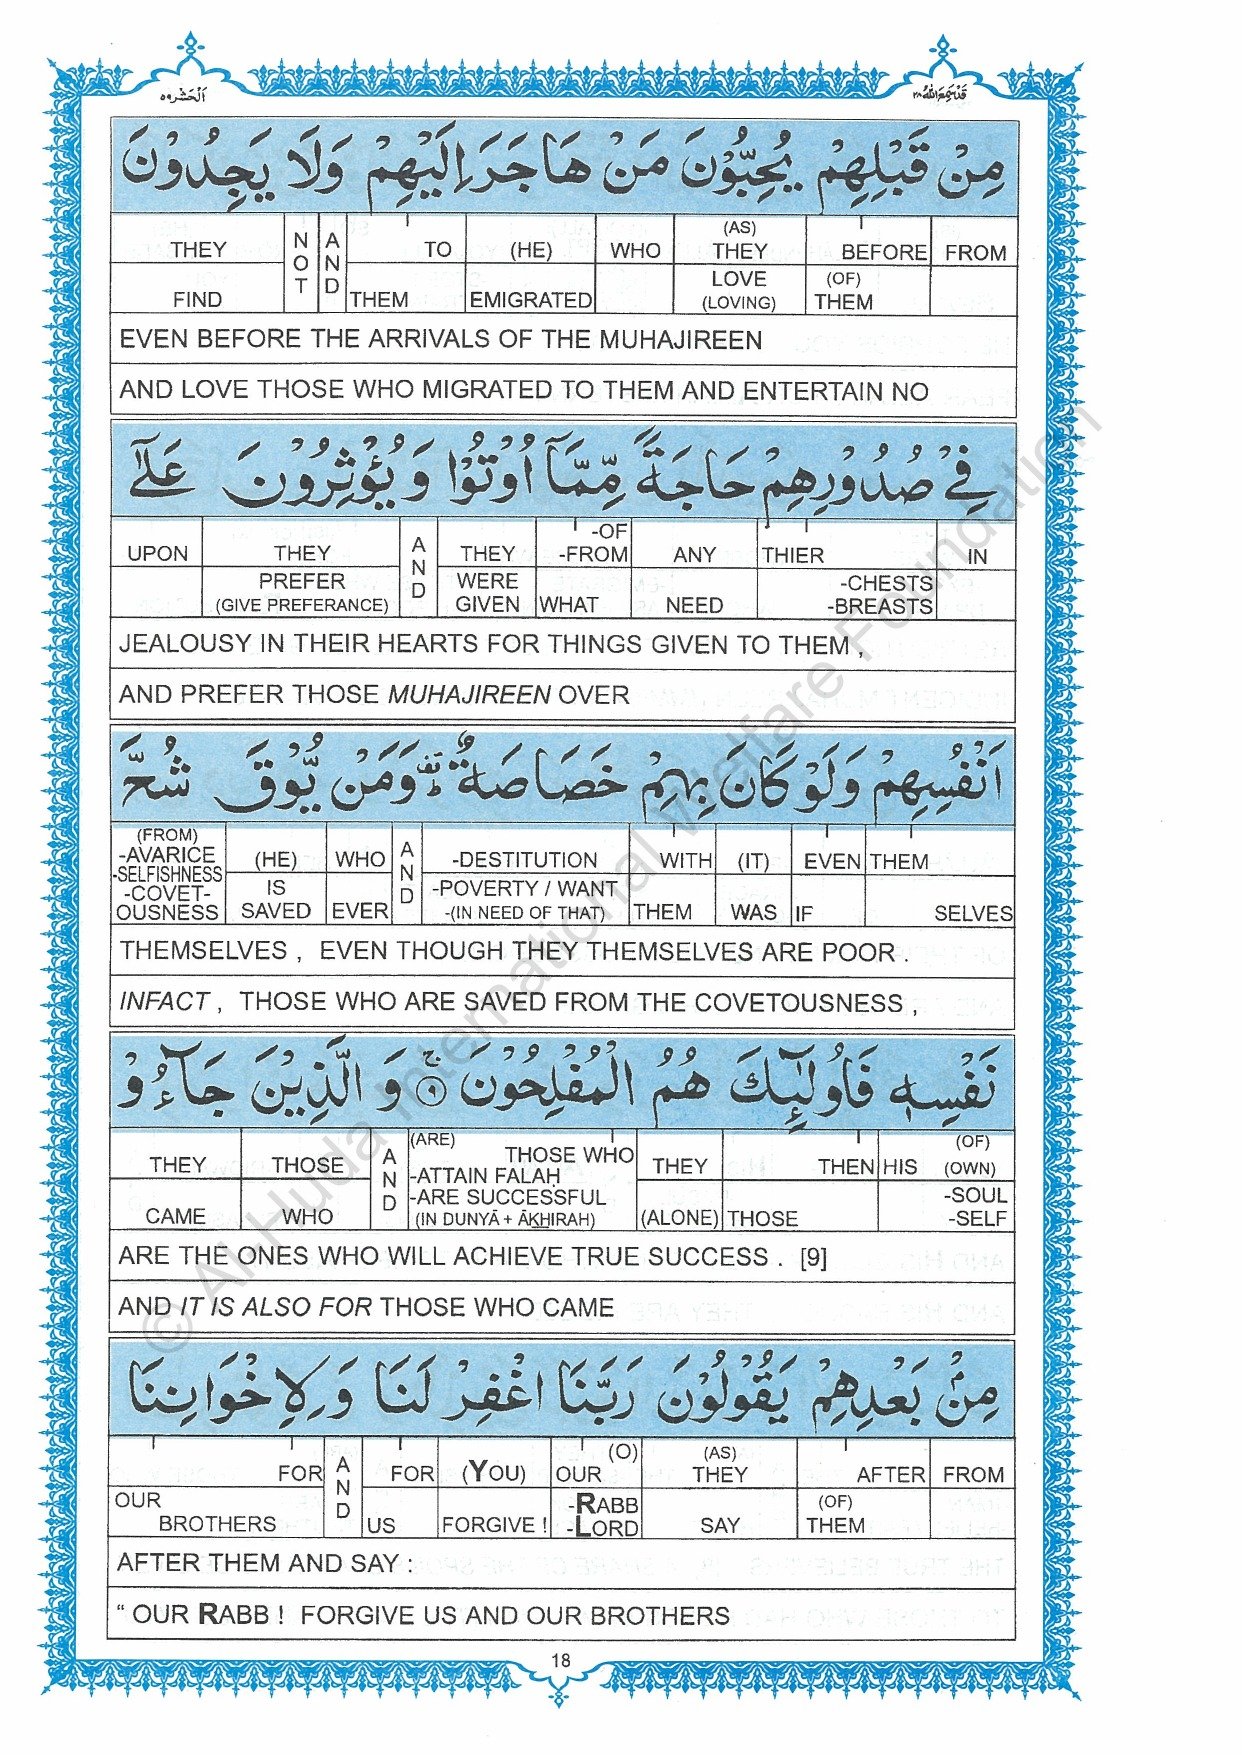 قَدْ سَمِعَ اللّٰهُ ٢٨
اَلْحَشْر ٥٩
مِنْ قَبْلِهِمْ يُحِبُّوْنَ مَنْ هَاجَرَ اِلَيْهِمْ وَلَا يَجِدُوْنَ
THEY NOT AND TO (HE) WHO (AS) THEY BEFORE FROM
FIND THEM EMIGRATED LOVE (LOVING) (OF) THEM
EVEN BEFORE THE ARRIVALS OF THE MUHAJIREEN
AND LOVE THOSE WHO MIGRATED TO THEM AND ENTERTAIN NO
فِيْ صُدُوْرِهِمْ حَاجَةً مِّمَّآ اُوْتُوْا وَيُؤْثِرُوْنَ عَلٰٓى
UPON THEY AND THEY -OF -FROM ANY THIER IN
PREFER (GIVE PREFERANCE) WERE GIVEN WHAT NEED -CHESTS -BREASTS
JEALOUSY IN THEIR HEARTS FOR THINGS GIVEN TO THEM ,
AND PREFER THOSE MUHAJIREEN OVER
اَنْفُسِهِمْ وَلَوْ كَانَ بِهِمْ خَصَاصَةٌ ۗ وَمَنْ يُّوْقَ شُحَّ
(FROM) -AVARICE -SELFISHNESS -COVET- OUSNESS (HE) WHO AND -DESTITUTION WITH (IT) EVEN THEM
IS SAVED EVER -POVERTY / WANT -(IN NEED OF THAT) THEM WAS IF SELVES
THEMSELVES , EVEN THOUGH THEY THEMSELVES ARE POOR .
INFACT , THOSE WHO ARE SAVED FROM THE COVETOUSNESS ,
نَفْسِهٖ فَاُولٰٓئِكَ هُمُ الْمُفْلِحُوْنَ ۚ ٩ وَالَّذِيْنَ جَآءُوْ
THEY THOSE AND (ARE) THOSE WHO THEY THEN HIS (OF) (OWN)
CAME WHO -ATTAIN FALAḤ -ARE SUCCESSFUL (IN DUNYĀ + ĀKHIRAH) (ALONE) THOSE -SOUL -SELF
ARE THE ONES WHO WILL ACHIEVE TRUE SUCCESS . [9]
AND IT IS ALSO FOR THOSE WHO CAME
مِنْۢ بَعْدِهِمْ يَقُوْلُوْنَ رَبَّنَا اغْفِرْ لَنَا وَلِاِخْوَانِنَا
FOR AND FOR (YOU) (O) OUR (AS) THEY AFTER FROM
OUR BROTHERS US FORGIVE ! -RABB -LORD SAY (OF) THEM
AFTER THEM AND SAY :
“ OUR RABB ! FORGIVE US AND OUR BROTHERS
18
© Al-Huda International Welfare Foundation